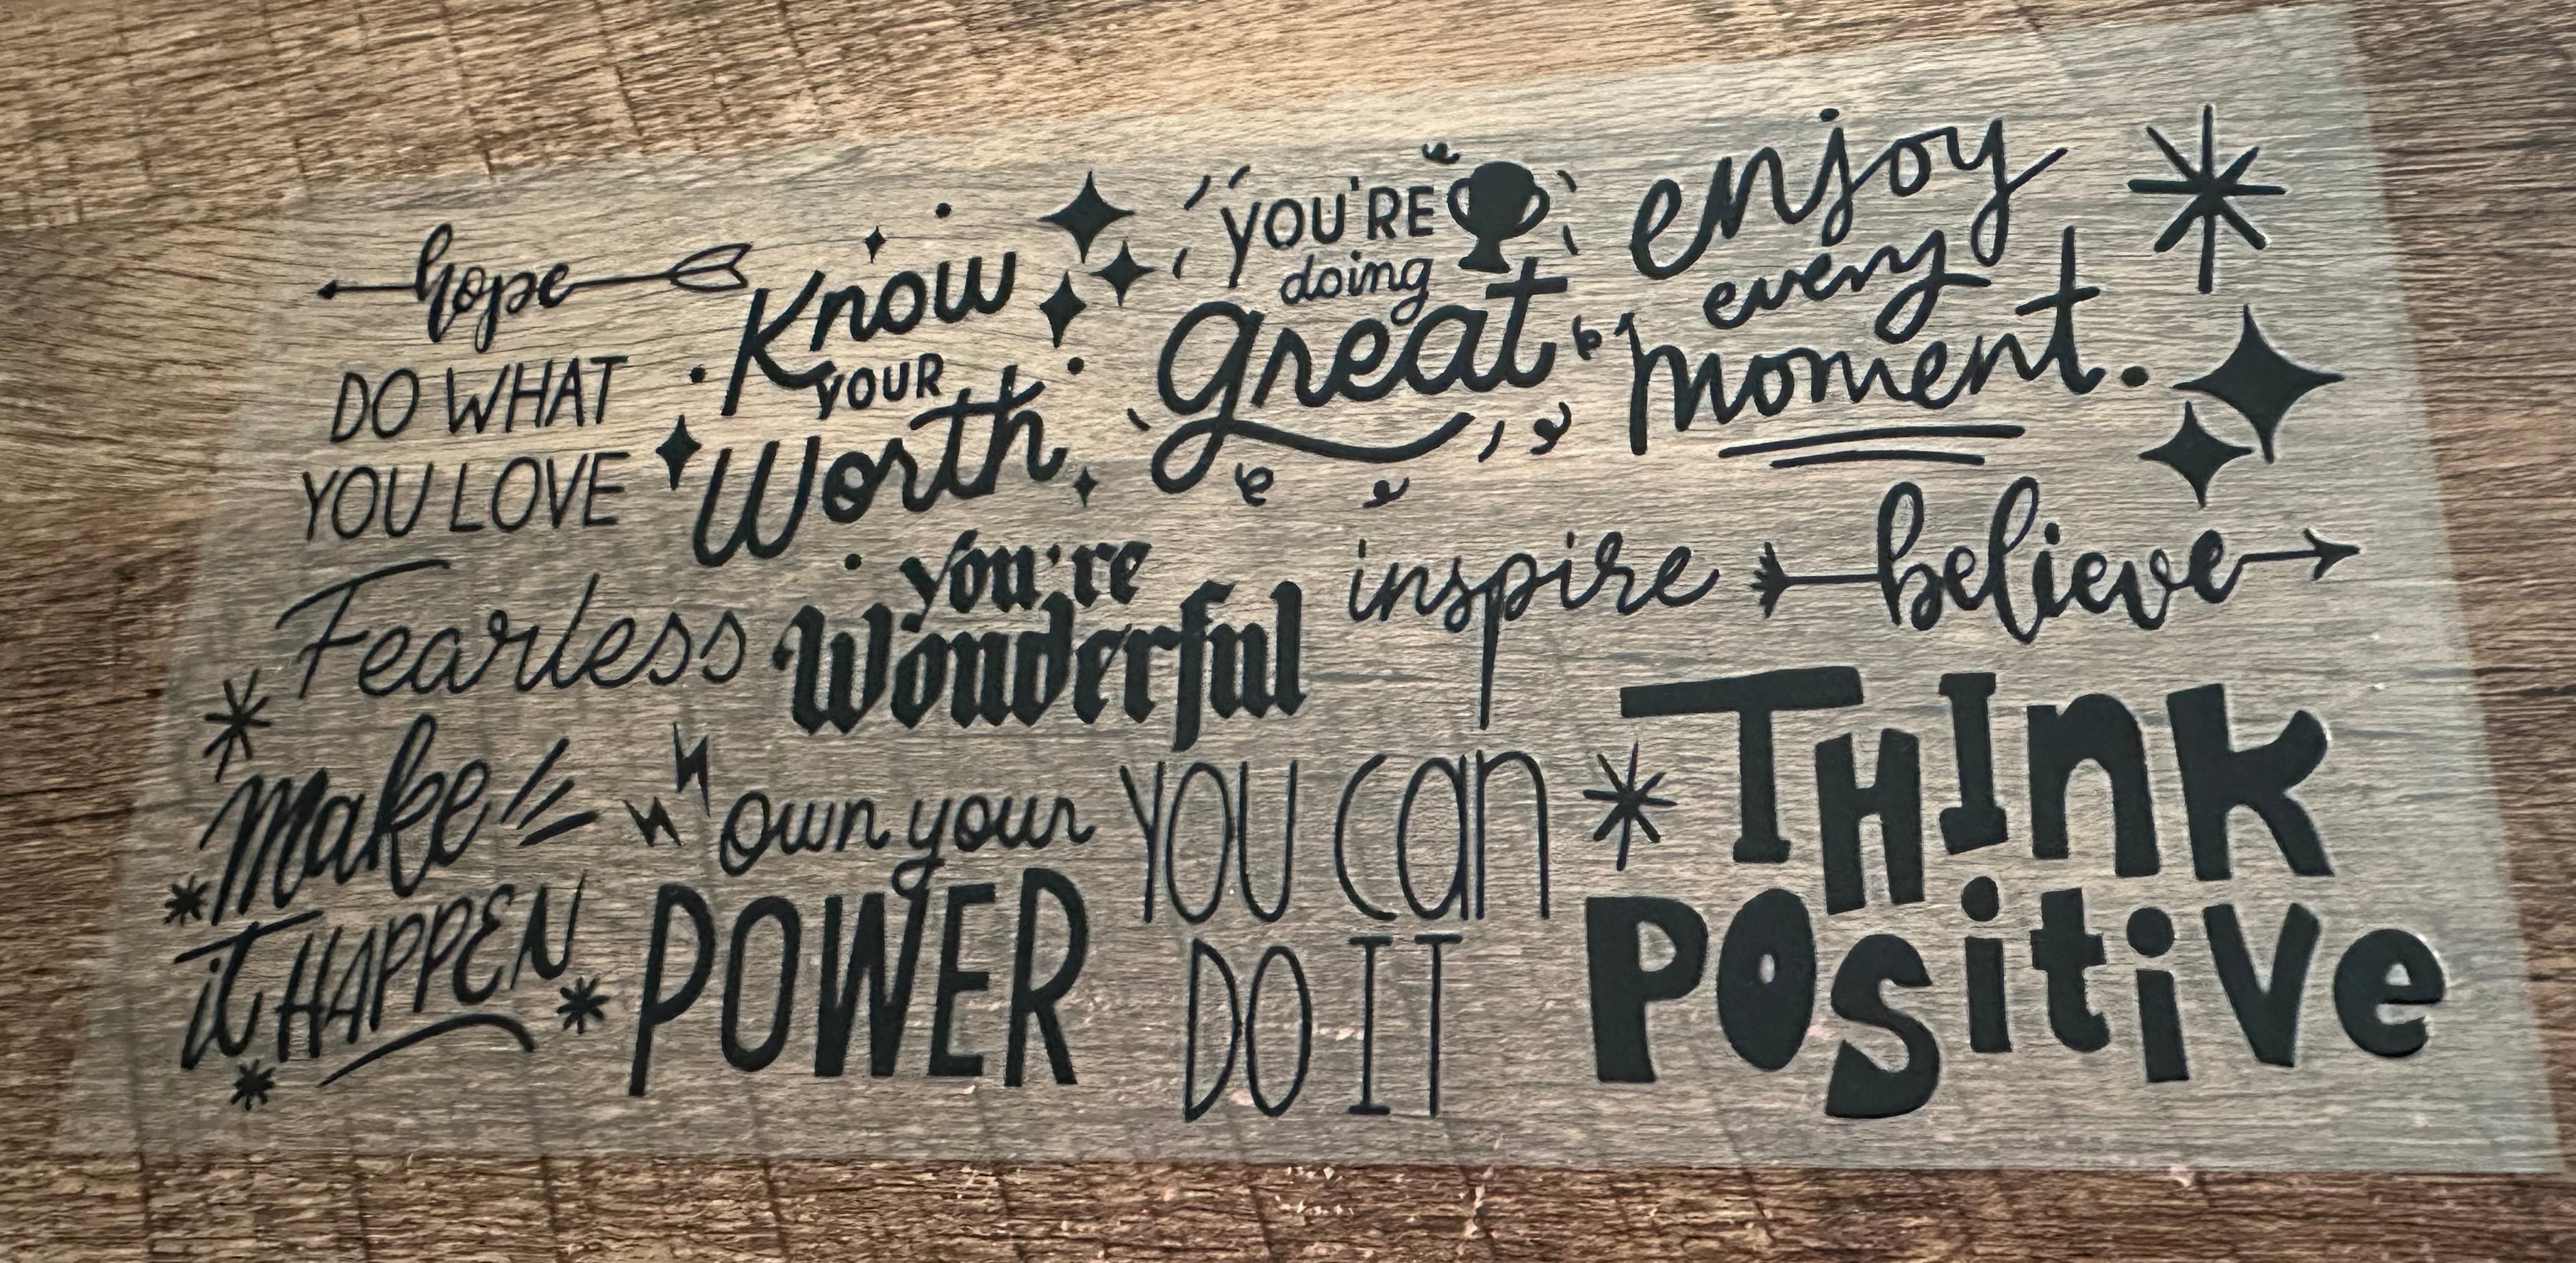 hope
DO WHAT
YOU LOVE
Know
YOUR
Worth
YOU'RE
doing
great
enjoy
every
moment.
Fearless
you're
Wonderful
inspire
believe
Make
it HAPPEN
own your
POWER
YOU Can
DO IT
THInk
POsitiVe